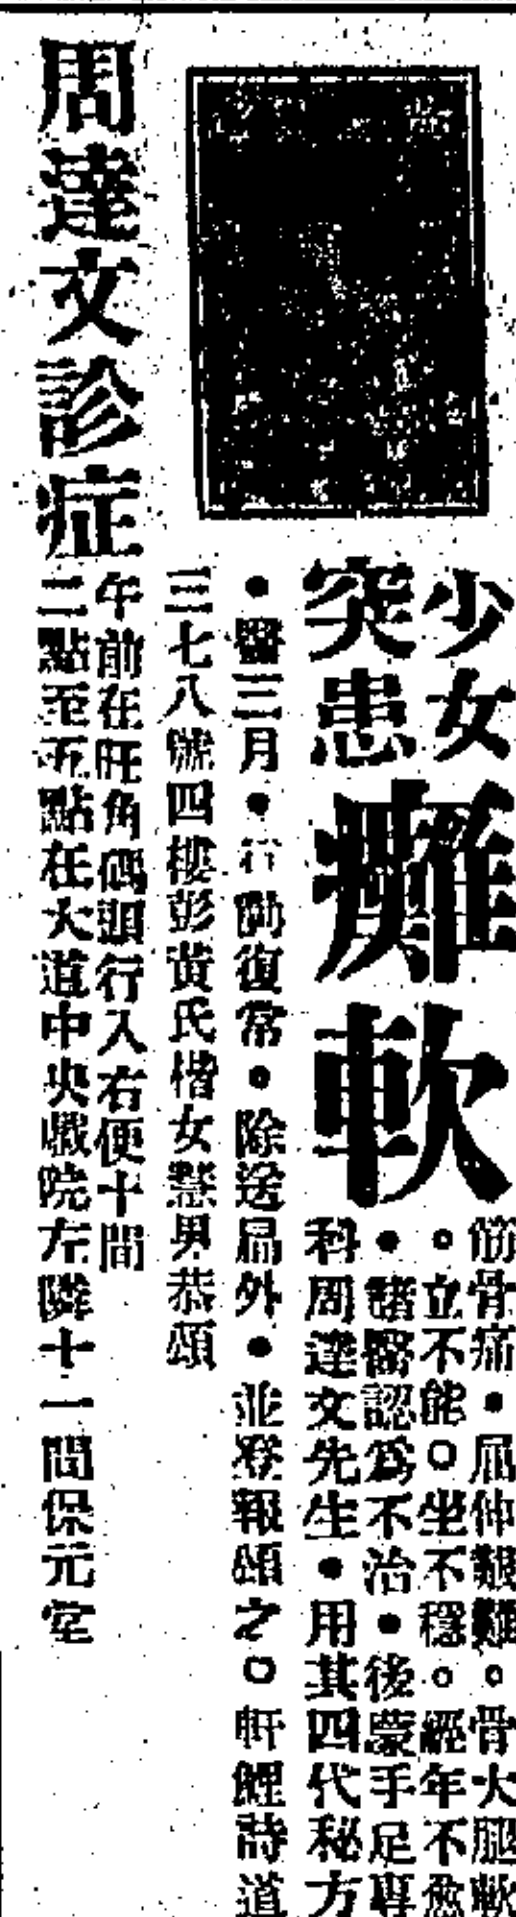 少女
突患
癱軟
筋骨痛・屈伸艱難。骨大腿軟
。立不能〇坐不穩。經年不愈
・諸醫認爲不治・後蒙手足專
科周達文先生・用其四代秘方
・醫三月・行動復常。除送扁外・並登報頌之〇軒鯉詩道
三七八號四樓彭黃氏楷女慧男恭頌
周達文診症
午前在旺角碼頭行入右便十間
二點至五點在大道中央戲院左隣十一間保元堂